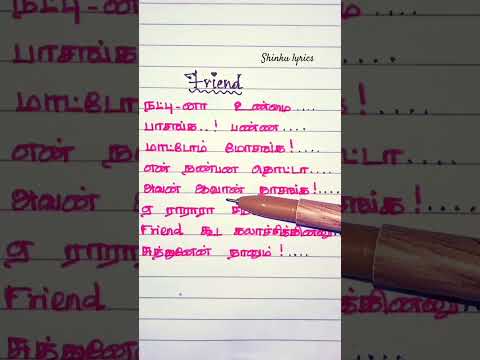 Shinku lyrics
Friend
நட்பு-னா உண்மை....
பாசங்க..! பண்ண....
மாட்டோம் மோசங்க!....
என் நண்பன தொட்டா....
அவன் ஆவான் நாசங்க!....
ஏ ராராரா
Friend கூட கலாச்சிக்கினு
சுத்துனேன் நானும்!....